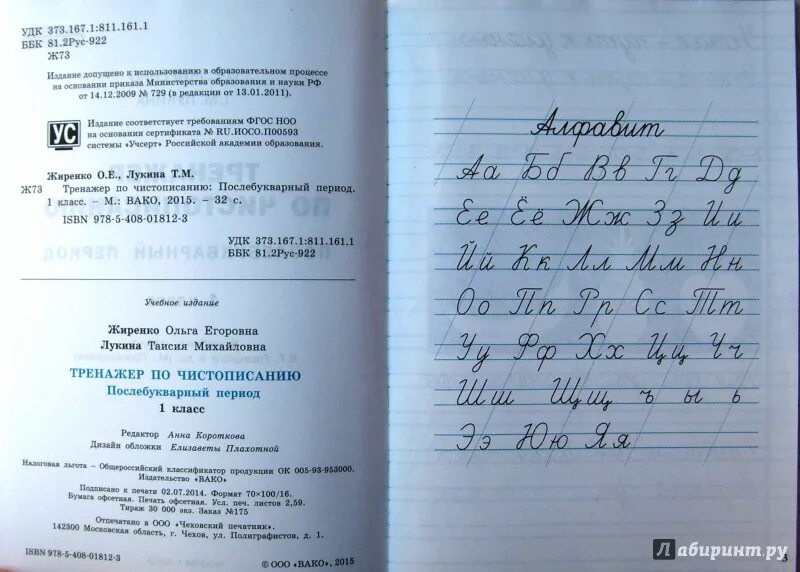 УДК 373.167.1:811.161.1
ББК 81.2Рус-922
Ж73
Издание допущено к использованию в образовательном процессе
на основании приказа Министерства образования и науки РФ
от 14.12.2009 № 729 (в редакции от 13.01.2011).
УС
Издание соответствует требованиям ФГОС НОО
на основании сертификата № RU.ИОСО.П00593
системы «Учсерт» Российской академии образования.
Жиренко О.Е., Лукина Т.М.
Ж73 Тренажер по чистописанию: Послебукварный период.
1 класс. – М.: ВАКО, 2015. – 32 с.
ISBN 978-5-408-01812-3
УДК 373.167.1:811.161.1
ББК 81.2Рус-922
Учебное издание
Жиренко Ольга Егоровна
Лукина Таисия Михайловна
ТРЕНАЖЕР ПО ЧИСТОПИСАНИЮ
Послебукварный период
1 класс
Редактор Анна Короткова
Дизайн обложки Елизаветы Плахотной
Налоговая льгота – Общероссийский классификатор продукции ОК 005-93-953000.
Издательство «ВАКО»
Подписано к печати 02.07.2014. Формат 70×100/16.
Бумага офсетная. Печать офсетная. Усл. печ. листов 2,59.
Тираж 30 000 экз. Заказ №175
Отпечатано в ООО «Чеховский печатник».
142300 Московская область, г. Чехов, ул. Полиграфистов, д. 1.
ISBN 978-5-408-01812-3
© ООО «ВАКО», 2015
Алфавит
Аа Бб Вв Гг Дд
Ее Ёё Жж Зз Ии
Йй Кк Лл Мм Нн
Оо Пп Рр Сс Тт
Уу Фф Хх Цц Чч
Шш Щщ ъ ы ь
Ээ Юю Яя
3
Лабиринт.ру